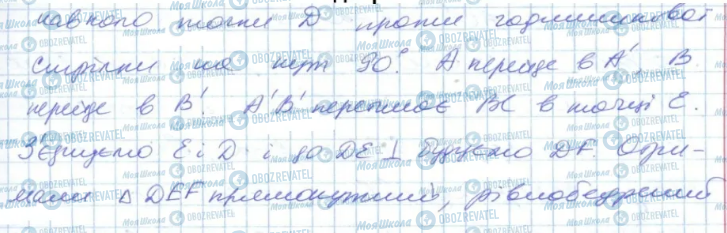 навколо точки D проти годинникової
стрілки на кут 90°. A перейде в A', B
перейде в B'. A'B' перетинає BC в точці E.
З'єднуємо E і D і до DE ⊥ будуємо DF. Отри-
мали △ DEF прямокутний, рівнобедрений